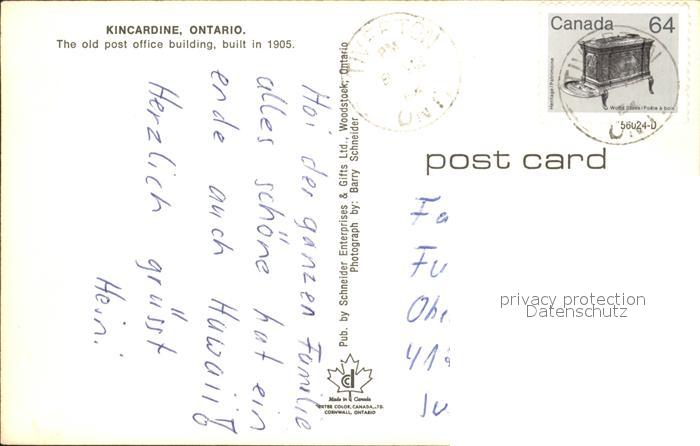 KINCARDINE, ONTARIO.
The old post office building, built in 1905.
Hoi der ganzen Familie
alles schöne hat ein
ende auch Huwaii
Herzlich grüsst
Heini
Pub. by Schneider Enterprises & Gifts Ltd., Woodstock, Ontario
Photograph by: Barry Schneider
Made in Canada
CORNWALL, ONTARIO
TIVERTON
PM
ONT
Canada 64
Heritage/Patrimoine
Wood Stove/Poêle à bois
56024-D
ONT
post card
Fa
Fu
Obe
41
Su
privacy protection
Datenschutz